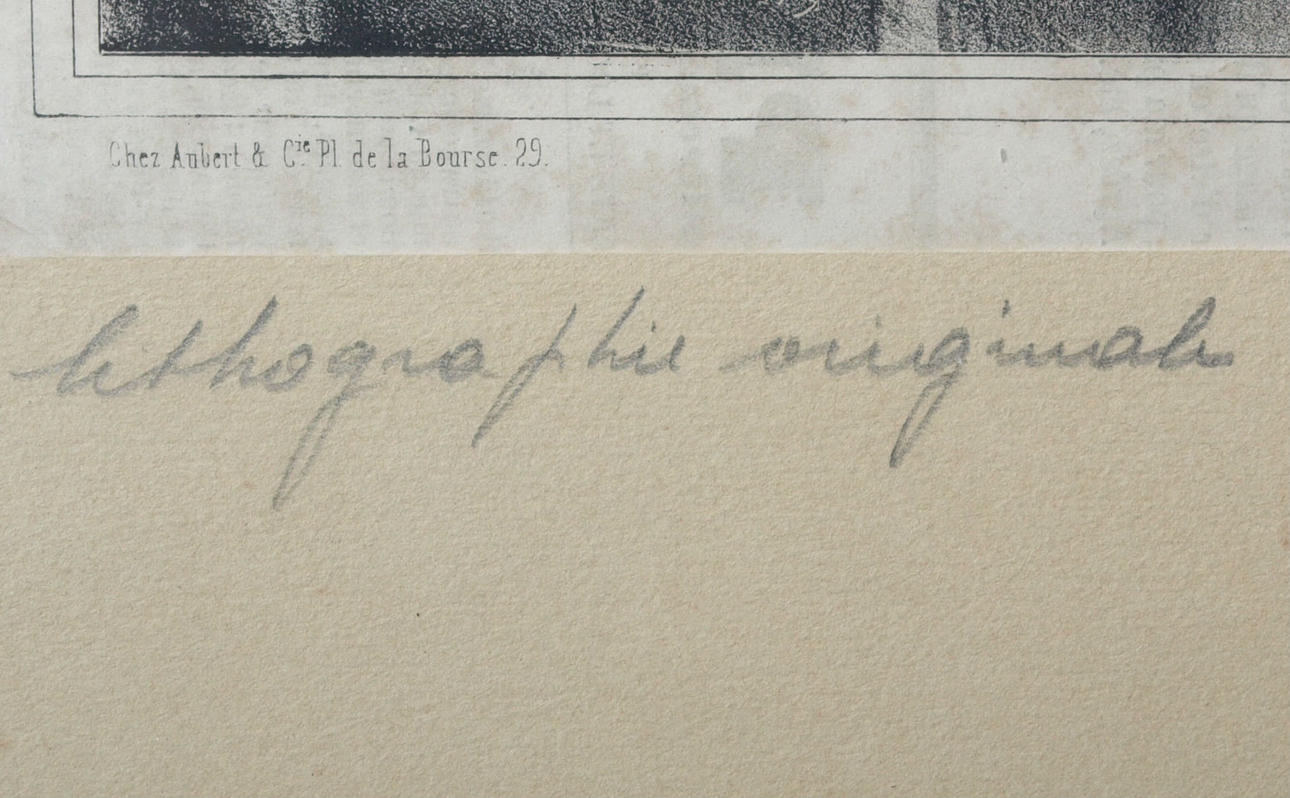 Chez Aubert & Cie Pl. de la Bourse. 29.
lithographie originale